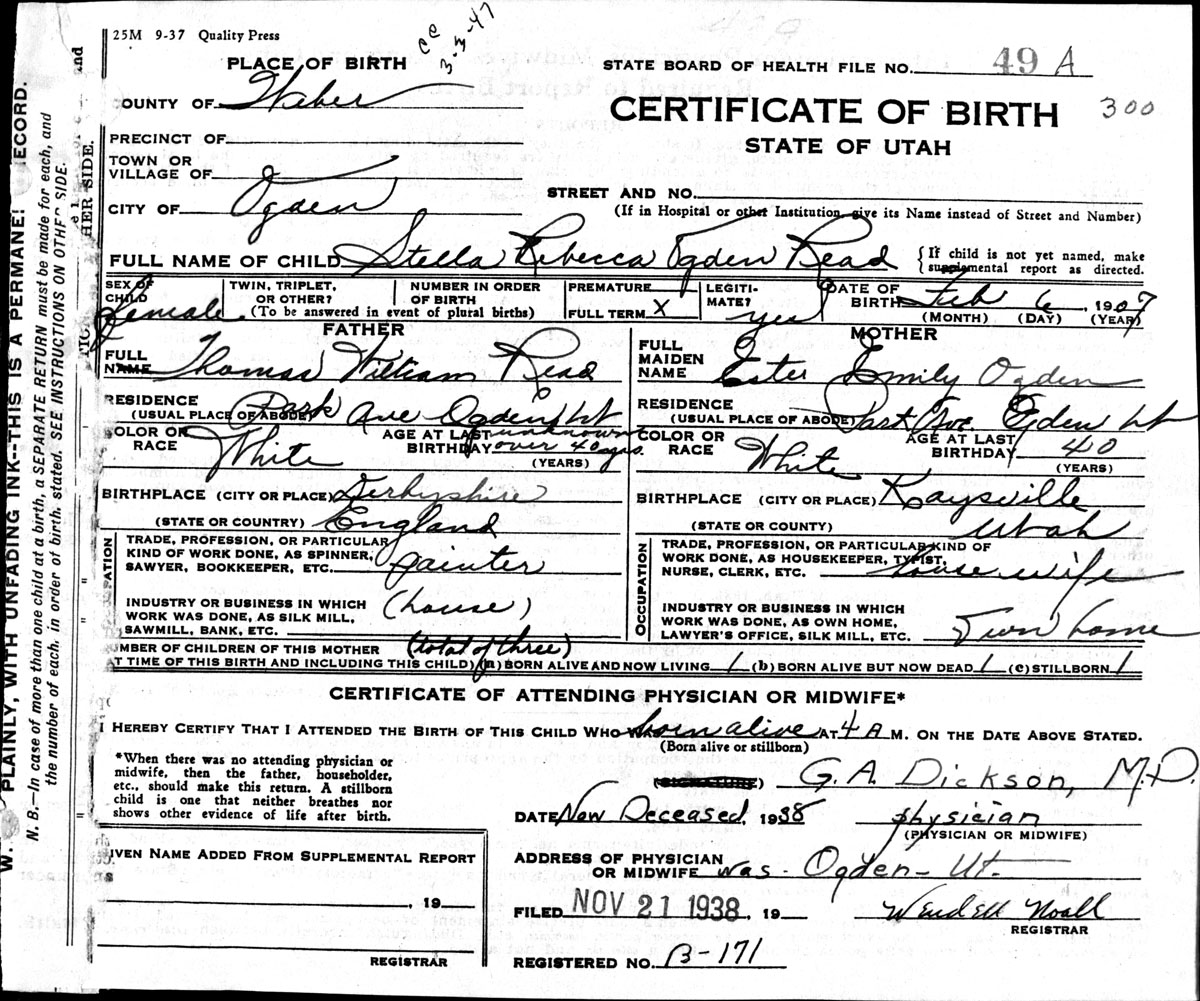 25M 9-37 Quality Press
CC 3-3-47
PLACE OF BIRTH
STATE BOARD OF HEALTH FILE NO. 49 A
COUNTY OF Weber
CERTIFICATE OF BIRTH 300
STATE OF UTAH
PRECINCT OF
TOWN OR VILLAGE OF
CITY OF Ogden
STREET AND NO.
(If in Hospital or other Institution, give its Name instead of Street and Number)
FULL NAME OF CHILD Stella Rebecca Ogden Read
{If child is not yet named, make supplemental report as directed.
SEX OF CHILD Female
TWIN, TRIPLET, OR OTHER?
NUMBER IN ORDER OF BIRTH
(To be answered in event of plural births)
PREMATURE
FULL TERM X
LEGITIMATE? yes
DATE OF BIRTH Feb 6, 1907
(MONTH) (DAY) (YEAR)
FATHER
FULL NAME Thomas William Read
RESIDENCE (USUAL PLACE OF ABODE) Park Ave Ogden Ut
COLOR OR RACE White
AGE AT LAST BIRTHDAY unknown over 40 yrs.
(YEARS)
BIRTHPLACE (CITY OR PLACE) Derbyshire
(STATE OR COUNTRY) England
OCCUPATION
TRADE, PROFESSION, OR PARTICULAR
KIND OF WORK DONE, AS SPINNER,
SAWYER, BOOKKEEPER, ETC. painter
INDUSTRY OR BUSINESS IN WHICH
WORK WAS DONE, AS SILK MILL,
SAWMILL, BANK, ETC. (house)
MOTHER
FULL MAIDEN NAME Ester Emily Ogden
RESIDENCE (USUAL PLACE OF ABODE) Park Ave. Ogden Ut
COLOR OR RACE White
AGE AT LAST BIRTHDAY 40
(YEARS)
BIRTHPLACE (CITY OR PLACE) Kaysville
(STATE OR COUNTY) Utah
OCCUPATION
TRADE, PROFESSION, OR PARTICULAR KIND OF
WORK DONE, AS HOUSEKEEPER, TYPIST,
NURSE, CLERK, ETC. house wife
INDUSTRY OR BUSINESS IN WHICH
WORK WAS DONE, AS OWN HOME,
LAWYER'S OFFICE, SILK MILL, ETC. own home
UMBER OF CHILDREN OF THIS MOTHER (total of three)
AT TIME OF THIS BIRTH AND INCLUDING THIS CHILD) (a) BORN ALIVE AND NOW LIVING 1 (b) BORN ALIVE BUT NOW DEAD 1 (c) STILLBORN 1
CERTIFICATE OF ATTENDING PHYSICIAN OR MIDWIFE*
I HEREBY CERTIFY THAT I ATTENDED THE BIRTH OF THIS CHILD WHO WAS born alive AT 4 A M. ON THE DATE ABOVE STATED.
(Born alive or stillborn)
*When there was no attending physician or
midwife, then the father, householder,
etc., should make this return. A stillborn
child is one that neither breathes nor
shows other evidence of life after birth.
(SIGNATURE) G. A. Dickson, M.D.
DATE Now Deceased, 1938 physician
(PHYSICIAN OR MIDWIFE)
GIVEN NAME ADDED FROM SUPPLEMENTAL REPORT
, 19
REGISTRAR
ADDRESS OF PHYSICIAN
OR MIDWIFE was - Ogden - Ut -
FILED NOV 21 1938, 19 Wendell Noall
REGISTRAR
REGISTERED NO. B-171
PLAINLY, WITH UNFADING INK--THIS IS A PERMANE! ECORD.
N. B.—In case of more than one child at a birth, a SEPARATE RETURN must be made for each, and
the number of each, in order of birth, stated. SEE INSTRUCTIONS ON OTHER SIDE.
and
HER SIDE.